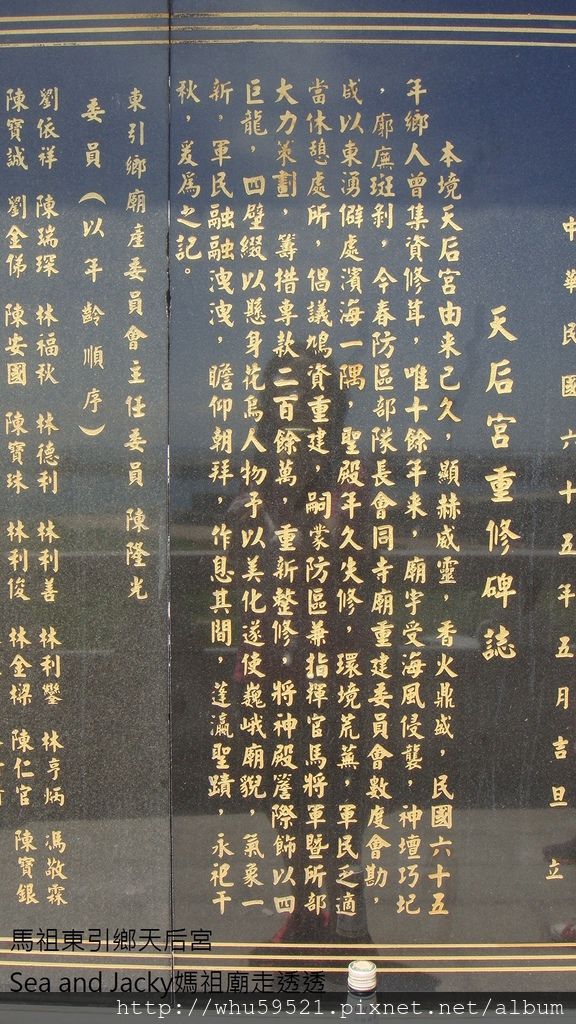 中華民國六十五年五月吉旦 立
天后宮重修碑誌
本境天后宮由來已久，顯赫威靈，香火鼎盛，民國六十五
年鄉人曾集資修茸，唯十餘年來，廟宇受海風侵襲，神壇巧圮
，廓廡斑剥，今春防區部隊長會同寺廟重建委員會數度會勘，
咸以東湧僻處濱海一隅，聖殿年久失修，環境荒蕪，軍民乏適
當休憩處所，倡議鳩資重建，嗣蒙防區兼指揮官馬將軍暨所部
大力策劃，籌措專款二百餘萬，重新整修，將神殿簷際飾以四
巨龍，四壁綴以懸身花鳥人物予以美化遂使巍峨廟貌，氣象一
新，軍民融融洩洩，瞻仰朝拜，作息其間，蓬瀛聖蹟，永祀千
秋，爰為之記。
東引鄉廟產委員會主任委員 陳隆光
委員（以年齡順序）
劉依祥 陳瑞琛 林福秋 林德利 林利善 林利鑾 林亨炳 馮敬霖
陳寶誠 劉金俤 陳安國 陳寶珠 林利俊 林金樑 陳仁官 陳寶銀
馬祖東引鄉天后宮
Sea and Jacky媽祖廟走透透
http://whu59521.pixnet.net/album